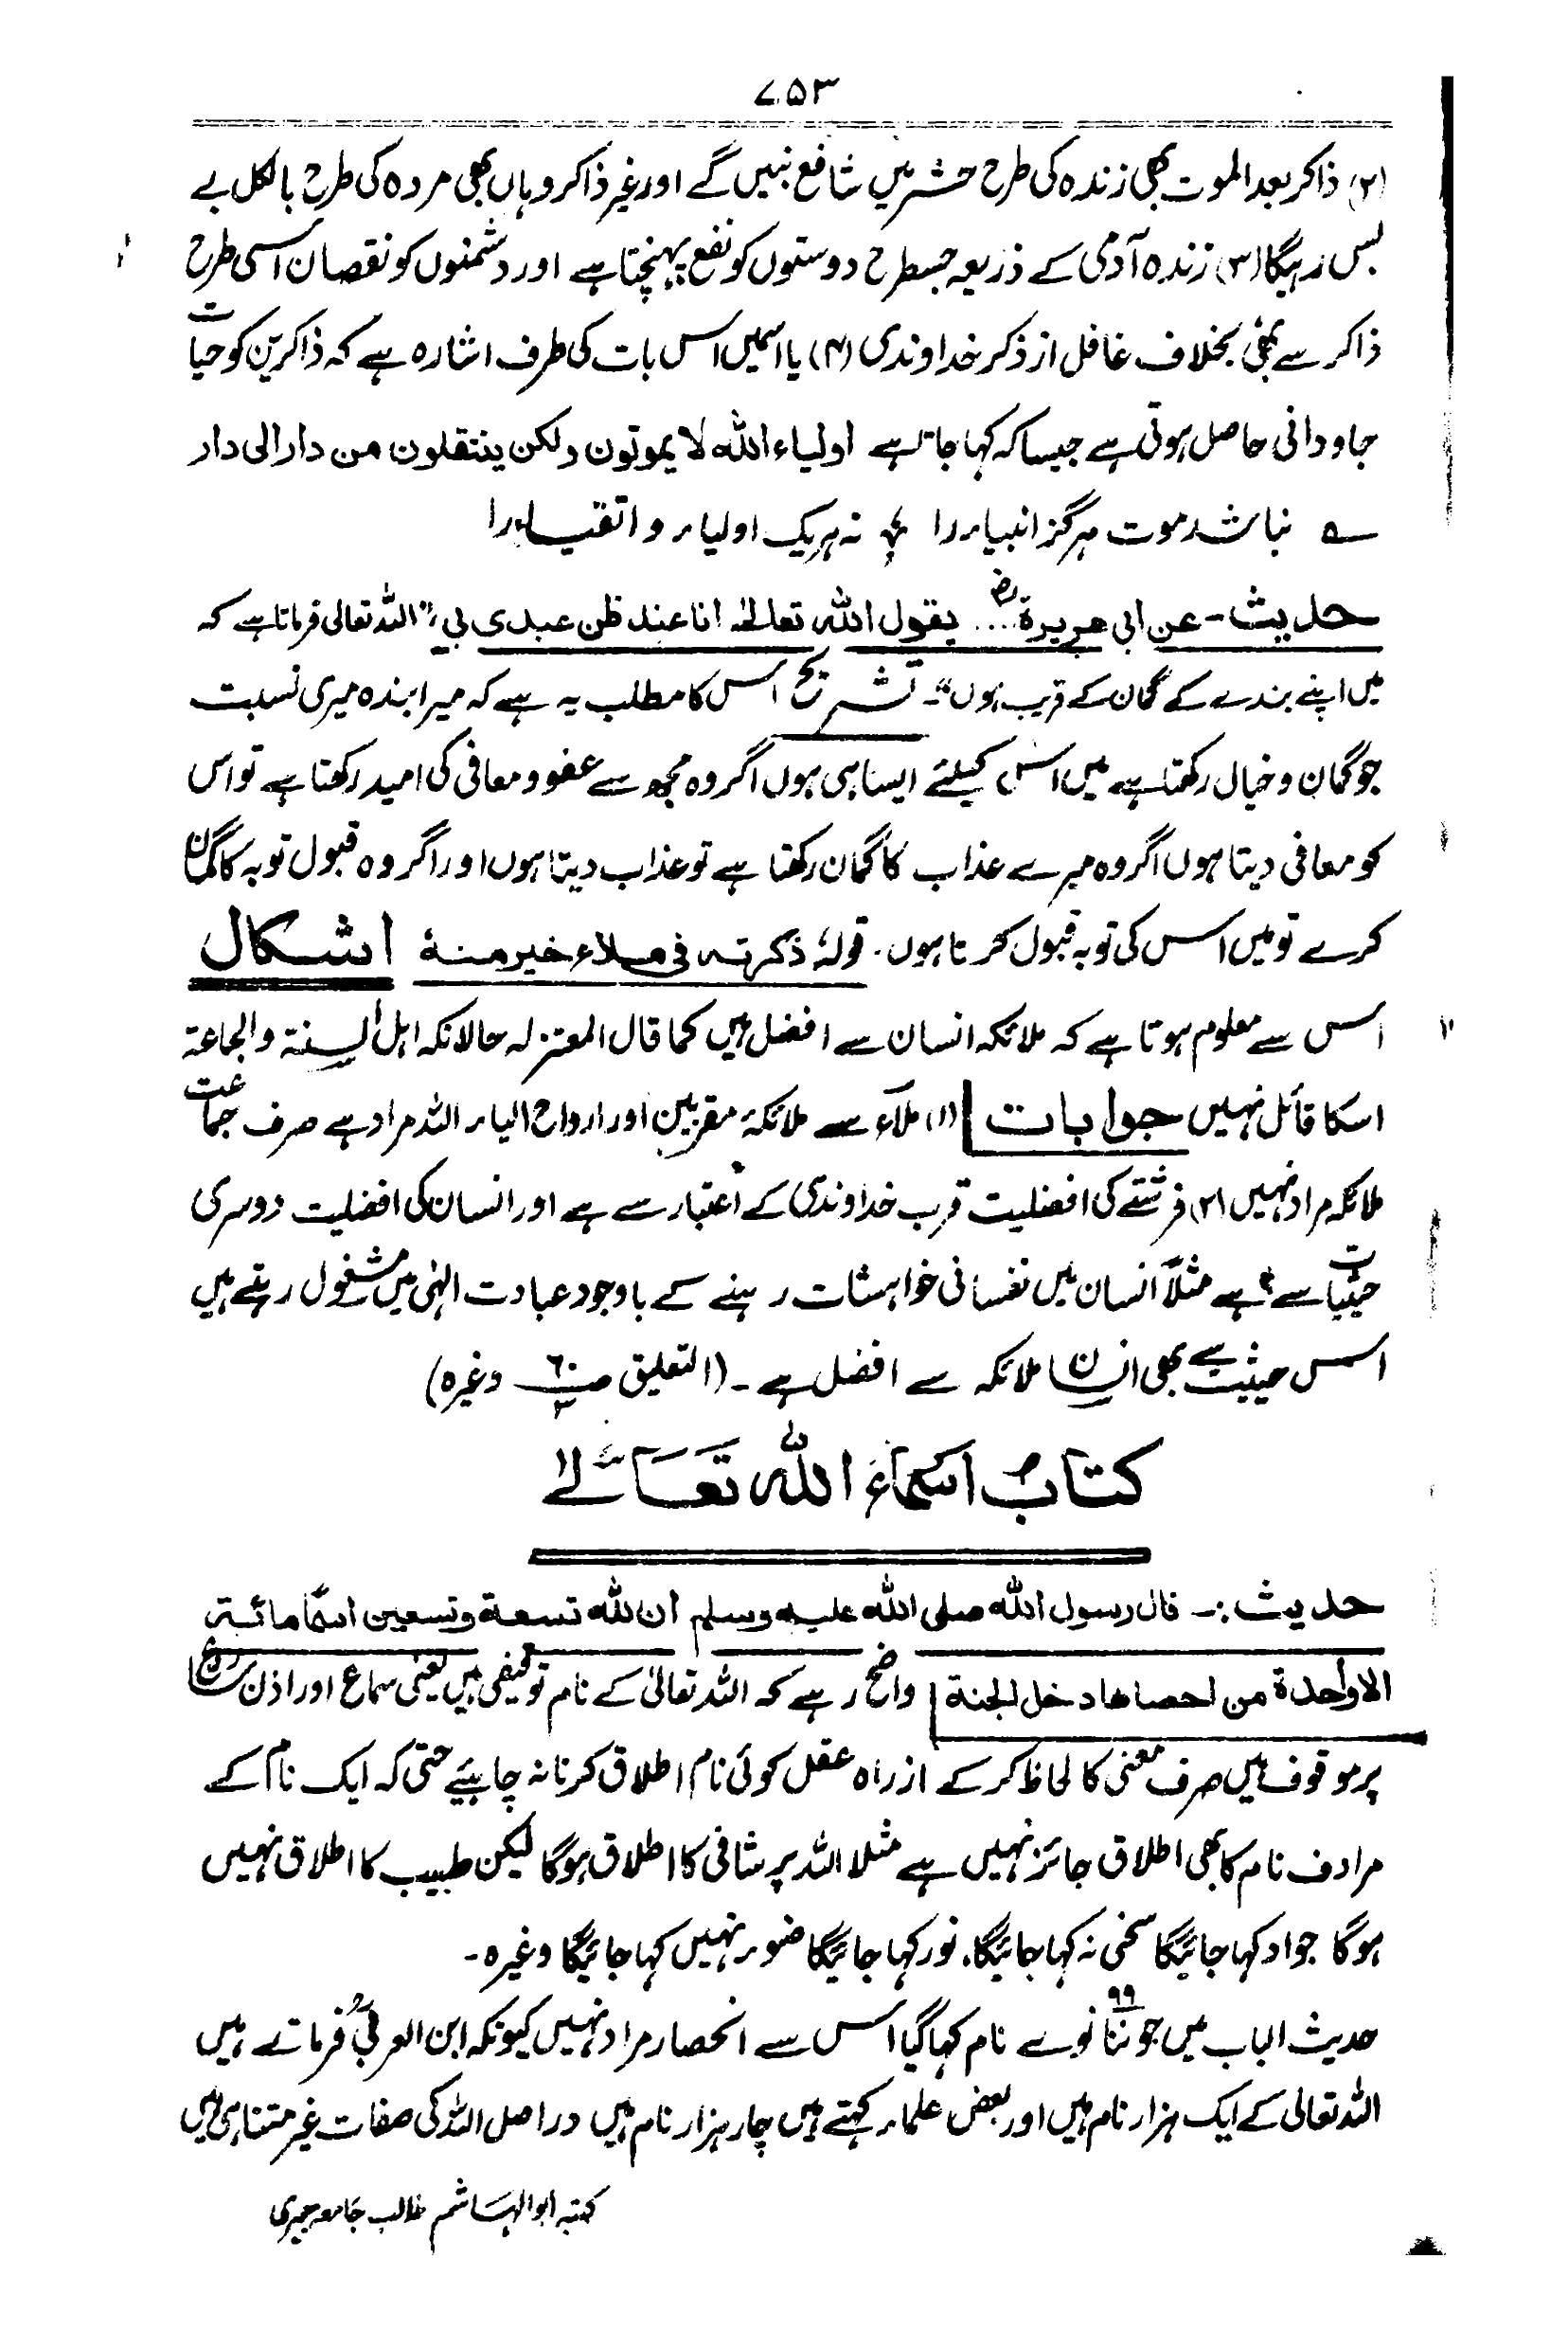 ۷۵۳
(۲) ذاکر بعد الموت بھی زندہ کی طرح حشر میں شافع بنیں گے اور غیر ذاکر وہاں بھی مردہ کی طرح بالکل بے
بس رہیگا (۳) زندہ آدمی کے ذریعہ جسطرح دوستوں کو نفع پہنچتا ہے اور دشمنوں کو نقصان اسی طرح
ذاکر سے بھی بخلاف غافل از ذکر خداوندی (۴) یا اسمیں اس بات کی طرف اشارہ ہے کہ ذاکرین کو حیات
جاودانی حاصل ہوتی ہے جیسا کہ کہا جاتا ہے اولیاء اللہ لا یموتون ولکن ینتقلون من دار الی دار
؎ نباشد موت ہرگز انبیاء را ؛ نہ ہریک اولیاء و اتقیاء را
حدیث - عن ابی ھریرۃؓ ... یقول اللہ تعالیٰ انا عند ظن عبدی بی، "اللہ تعالی فرماتا ہے کہ
میں اپنے بندے کے گمان کے قریب ہوں"۔ تشریح اس کا مطلب یہ ہے کہ میرا بندہ میری نسبت
جو گمان و خیال رکھتا ہے میں اس کیلئے ایسا ہی ہوں اگر وہ مجھ سے عفو و معافی کی امید رکھتا ہے تو اس
کو معافی دیتا ہوں اگر وہ میرے عذاب کا گمان رکھتا ہے تو عذاب دیتا ہوں اور اگر وہ قبول توبہ کا گمان
کرے تو میں اس کی توبہ قبول کرتا ہوں۔ قولہٗ ذکرتہ فی ملاء خیر منہ اشکال
اس سے معلوم ہوتا ہے کہ ملائکہ انسان سے افضل ہیں کما قال المعتزلہ حالانکہ اہل السنۃ والجماعۃ
اسکا قائل نہیں جوابات (۱) ملآء سے ملائکۂ مقربین اور ارواح الیاء اللہ مراد ہے صرف جماعت
ملائکہ مراد نہیں (۲) فرشتے کی افضلیت قرب خداوندی کے اعتبار سے ہے اور انسان کی افضلیت دوسری
حیثیات سے ہے مثلاً انسان میں نفسانی خواہشات رہنے کے باوجود عبادت الہٰی میں مشغول رہتے ہیں
اس حیثیت سے بھی انسان ملائکہ سے افضل ہے۔ (التعلیق ص ۶۰/۳ وغیرہ)
کتاب اسماء اللہ تعالےٰ
حدیث :۔ قال رسول اللہ صلی اللہ علیہ وسلم ان للہ تسعۃ وتسعین اسمًا مائۃ
الا واحدۃ من احصاھا دخل الجنۃ واضح رہے کہ اللہ تعالیٰ کے نام توقیفی ہیں یعنی سماع اور اذن شارع
پر موقوف ہیں صرف معنی کا لحاظ کرکے از راہ عقل کوئی نام اطلاق کرنا نہ چاہیئے حتی کہ ایک نام کے
مرادف نام کا بھی اطلاق جائز نہیں ہے مثلا اللہ پر شافی کا اطلاق ہوگا لیکن طبیب کا اطلاق نہیں
ہوگا جواد کہا جائیگا سخی نہ کہا جائیگا، نور کہا جائیگا ضوء نہیں کہا جائیگا وغیرہ۔
حدیث الباب میں جو ننانوے ۹۹ نام کہا گیا اس سے انحصار مراد نہیں کیونکہ ابن العربیؒ فرماتے ہیں
اللہ تعالی کے ایک ہزار نام ہیں اور بعض علماء کہتے ہیں چار ہزار نام ہیں دراصل اللہ کی صفات غیر متناہی ہیں
کتبہ ابو الہاشم طالب جامعہ